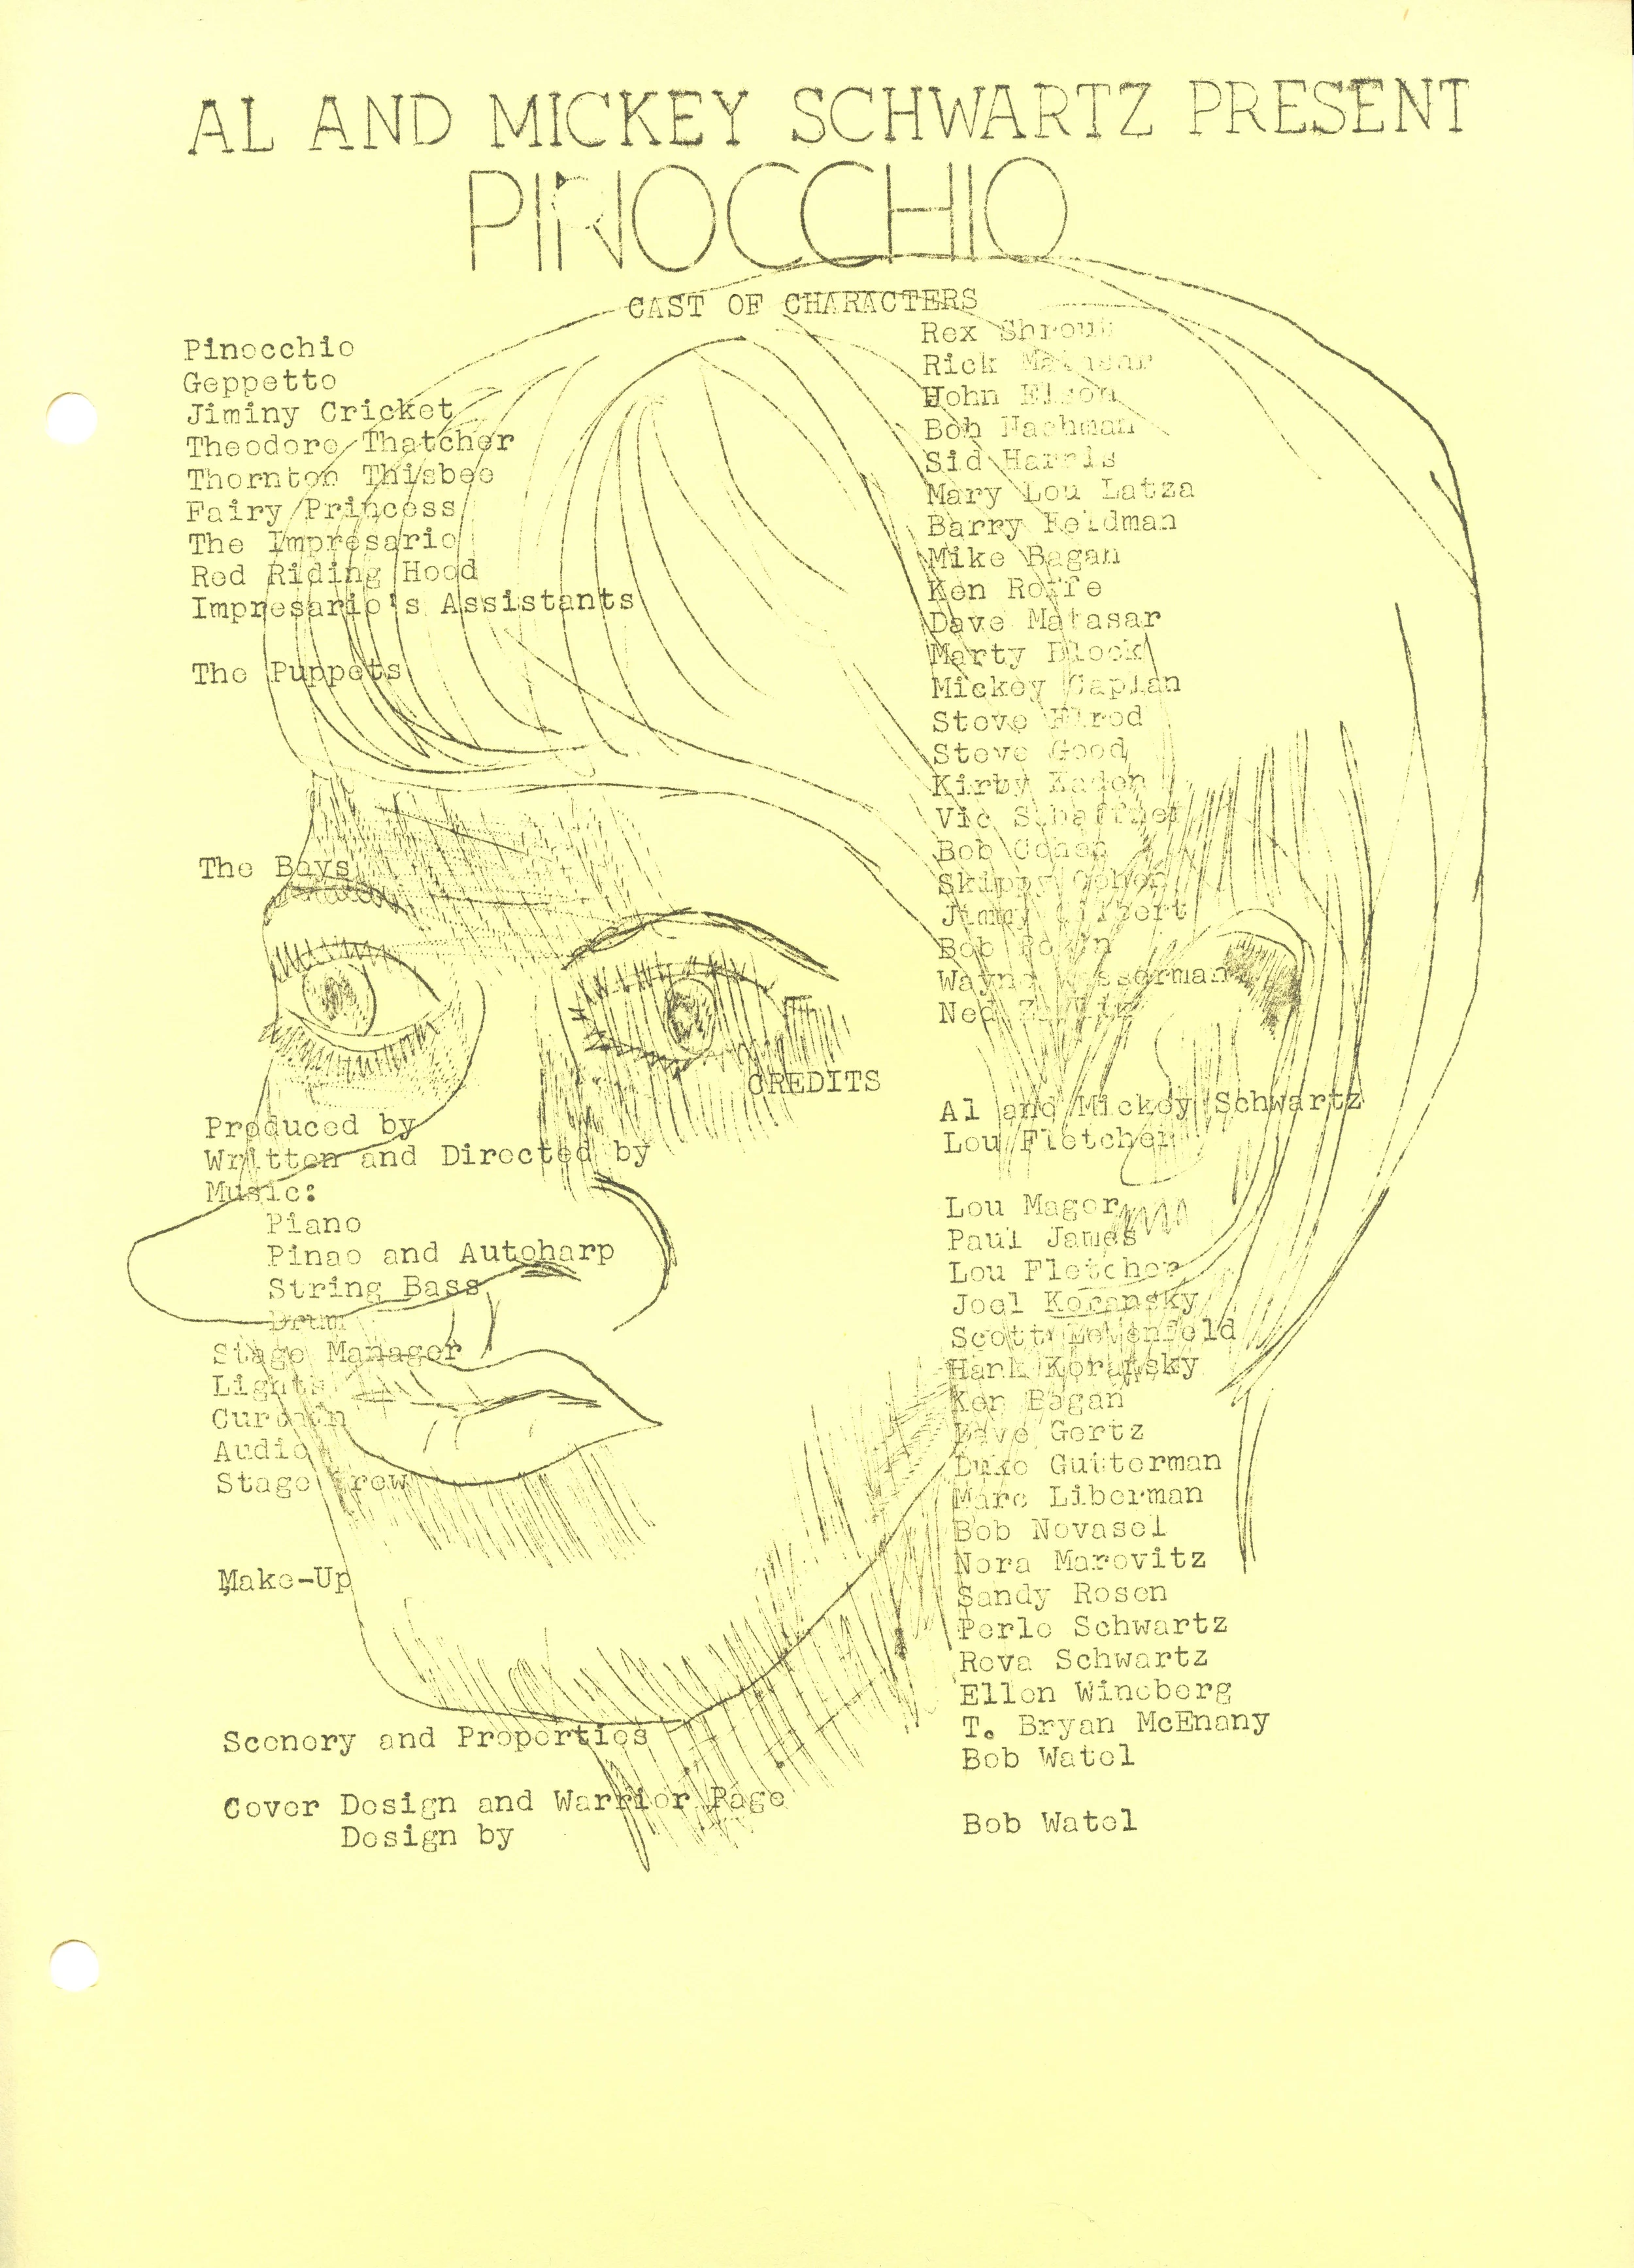 AL AND MICKEY SCHWARTZ PRESENT
PINOCCHIO
CAST OF CHARACTERS
Pinocchio Rex Shrout
Geppetto Rick Matasar
Jiminy Cricket Hohn Elson
Theodore Thatcher Bob Nachman
Thornton Thisbee Sid Harris
Fairy Princess Mary Lou Latza
The Impresario Barry Feldman
Red Riding Hood Mike Bagan
Impresario's Assistants Ken Roffe
Dave Matasar
The Puppets Marty Block
Mickey Caplan
Steve Elrod
Steve Good
Kirby Kaden
Vic Schaffner
The Boys Bob Cohen
Skippy Cohen
Jimmy Gilbert
Bob
Wayne Wasserman
Ned
CREDITS
Produced by Al and Mickey Schwartz
Written and Directed by Lou Fletcher
Music:
Piano Lou Mager
Pinao and Autoharp Paul James
String Bass Lou Fletcher
Drum Joel Koransky
Stage Manager Scott Lewenfeld
Lights Hank Koransky
Curtain Ken Bagan
Audio Dave Gertz
Stage Crew Duke Gutterman
Marc Liberman
Bob Novasel
Make-Up Nora Marovitz
Sandy Rosen
Perle Schwartz
Reva Schwartz
Ellen Wineberg
Scenery and Properties T. Bryan McEnany
Bob Watel
Cover Design and Warrior Page
Design by Bob Watel